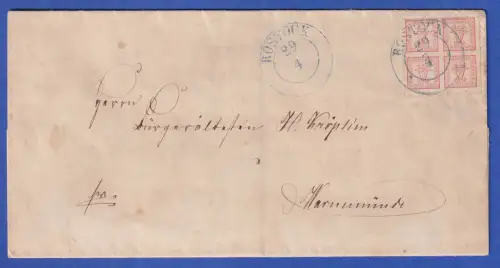 ROSTOCK
29
4
ROSTOCK
29
4
Herrn
Bürgerältesten H. Kröplin
fr.
Warnemünde